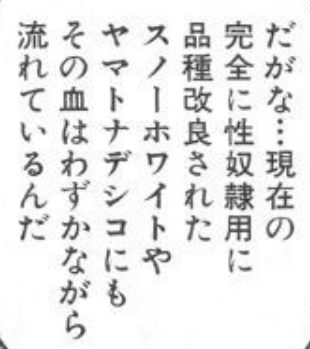 だがな…現在の
完全に性奴隷用に
品種改良された
スノーホワイトや
ヤマトナデシコにも
その血はわずかながら
流れているんだ